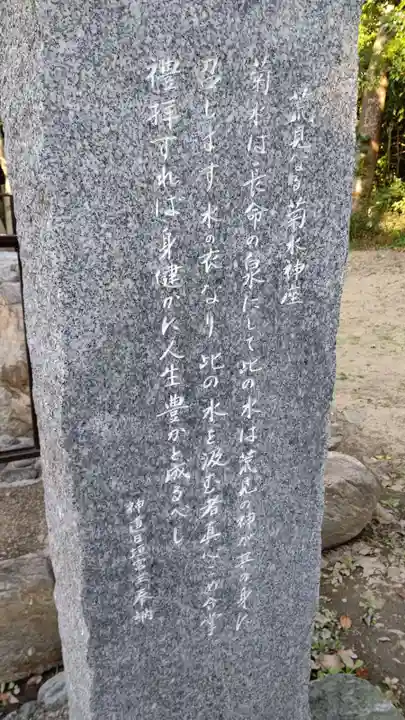 荒見なる菊水神座
菊水は長命の泉にして此の水は荒見の神が其の身に
召します水の衣なり此の水を汲む者真心こめ合掌
禮拝すれば身健かに人生豊かと成るべし
神道日垣宮 奉納